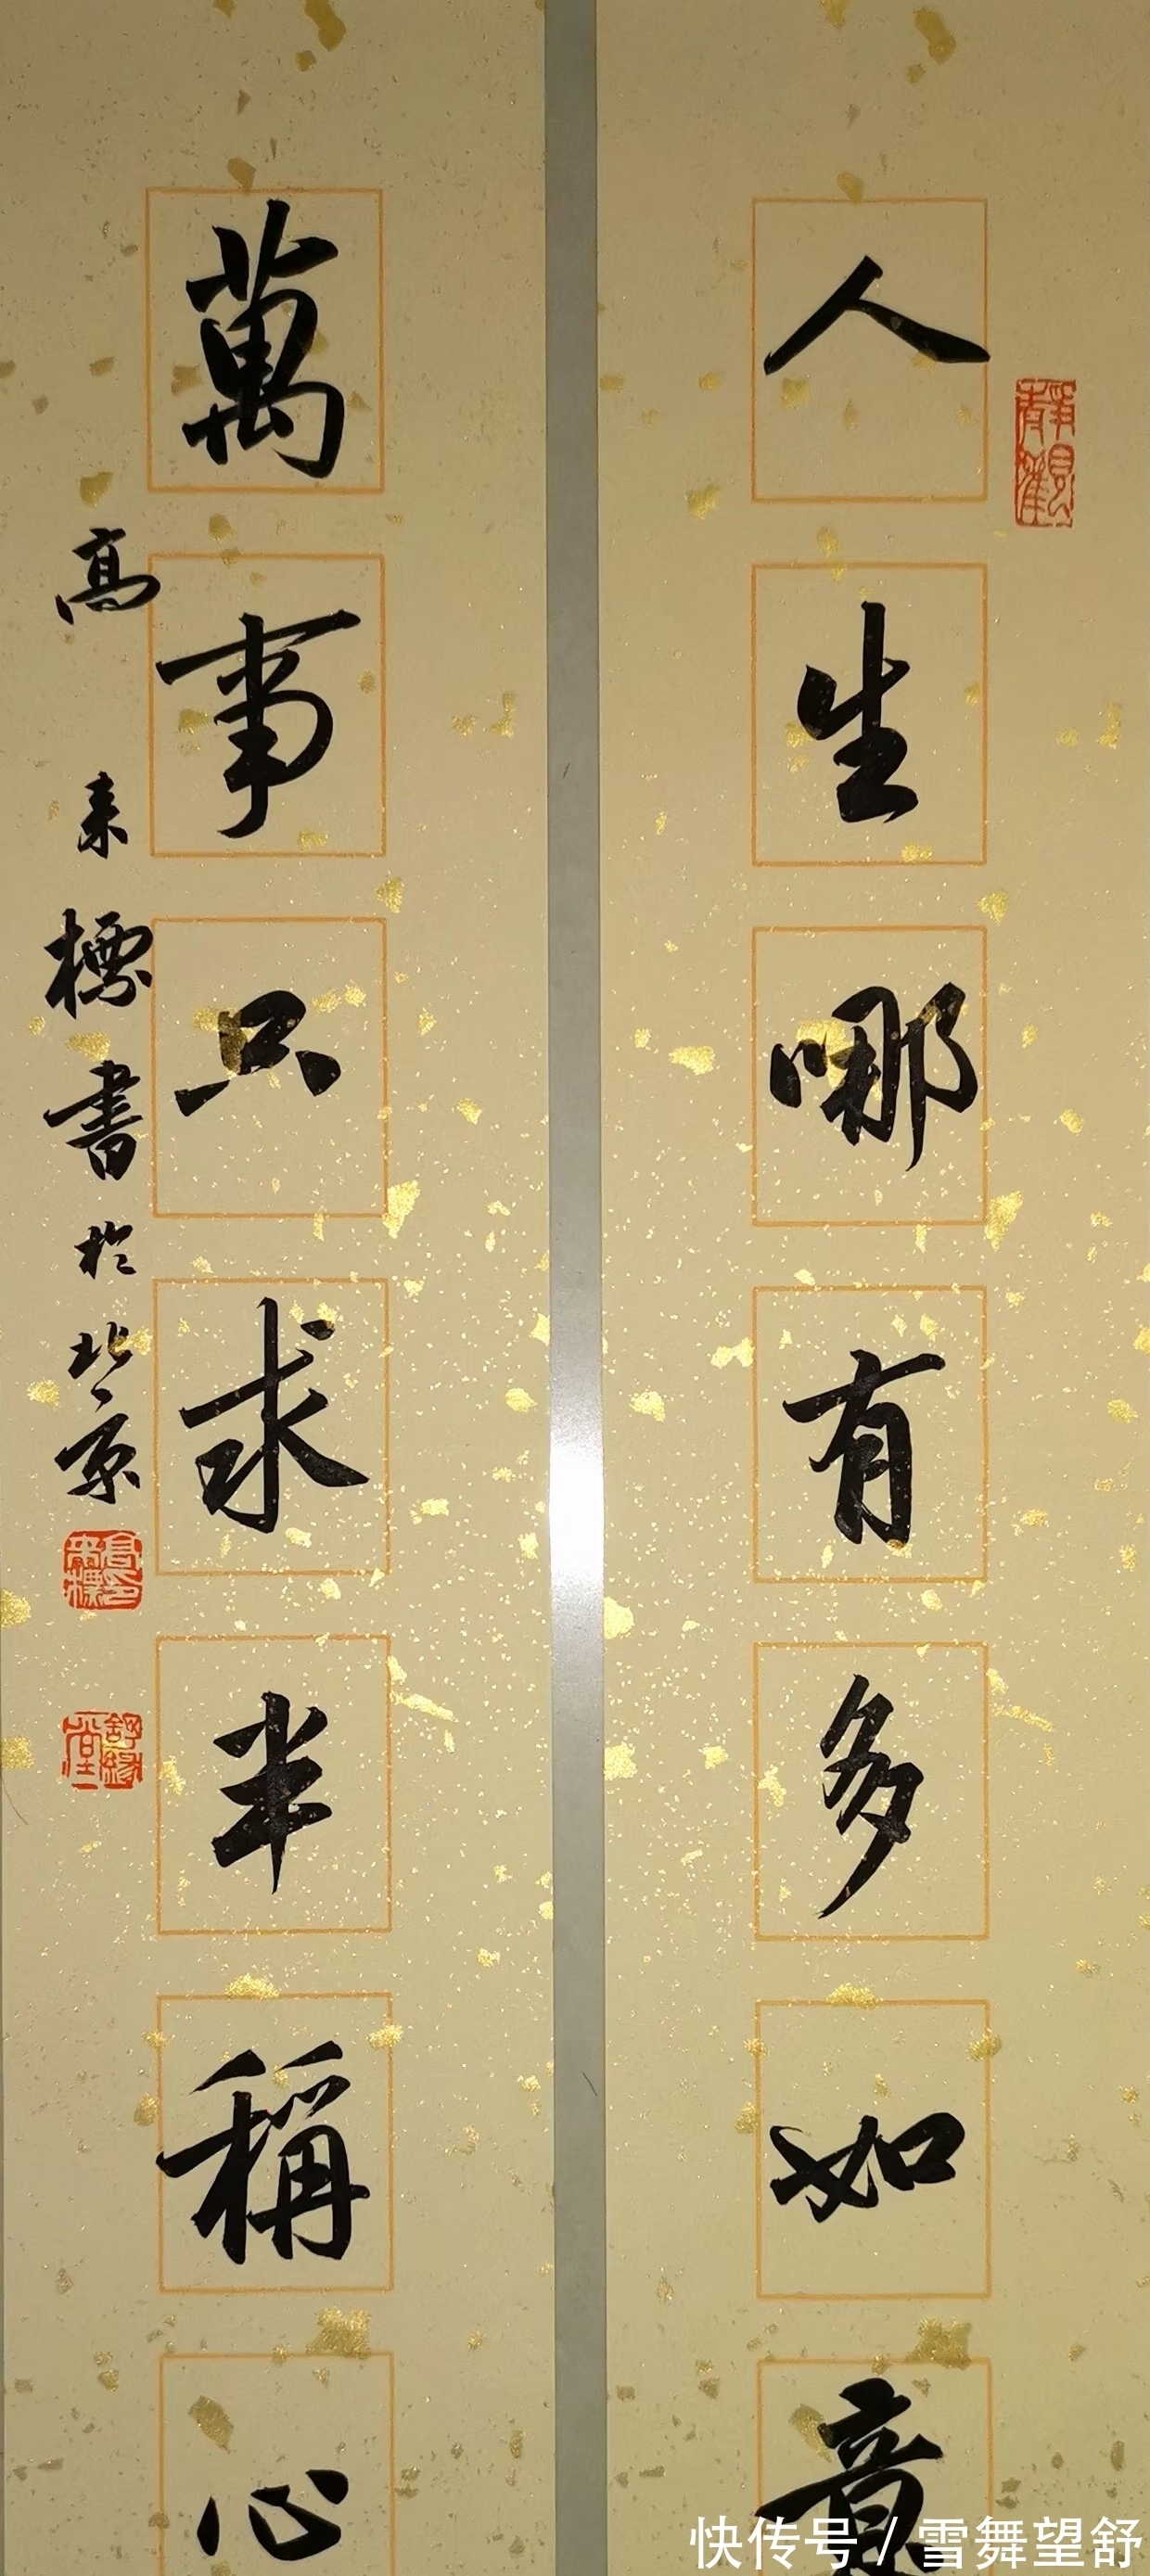 人生哪有多如意
萬事只求半稱心
高来標書於北京
靜觀
快传号 / 雪舞望舒